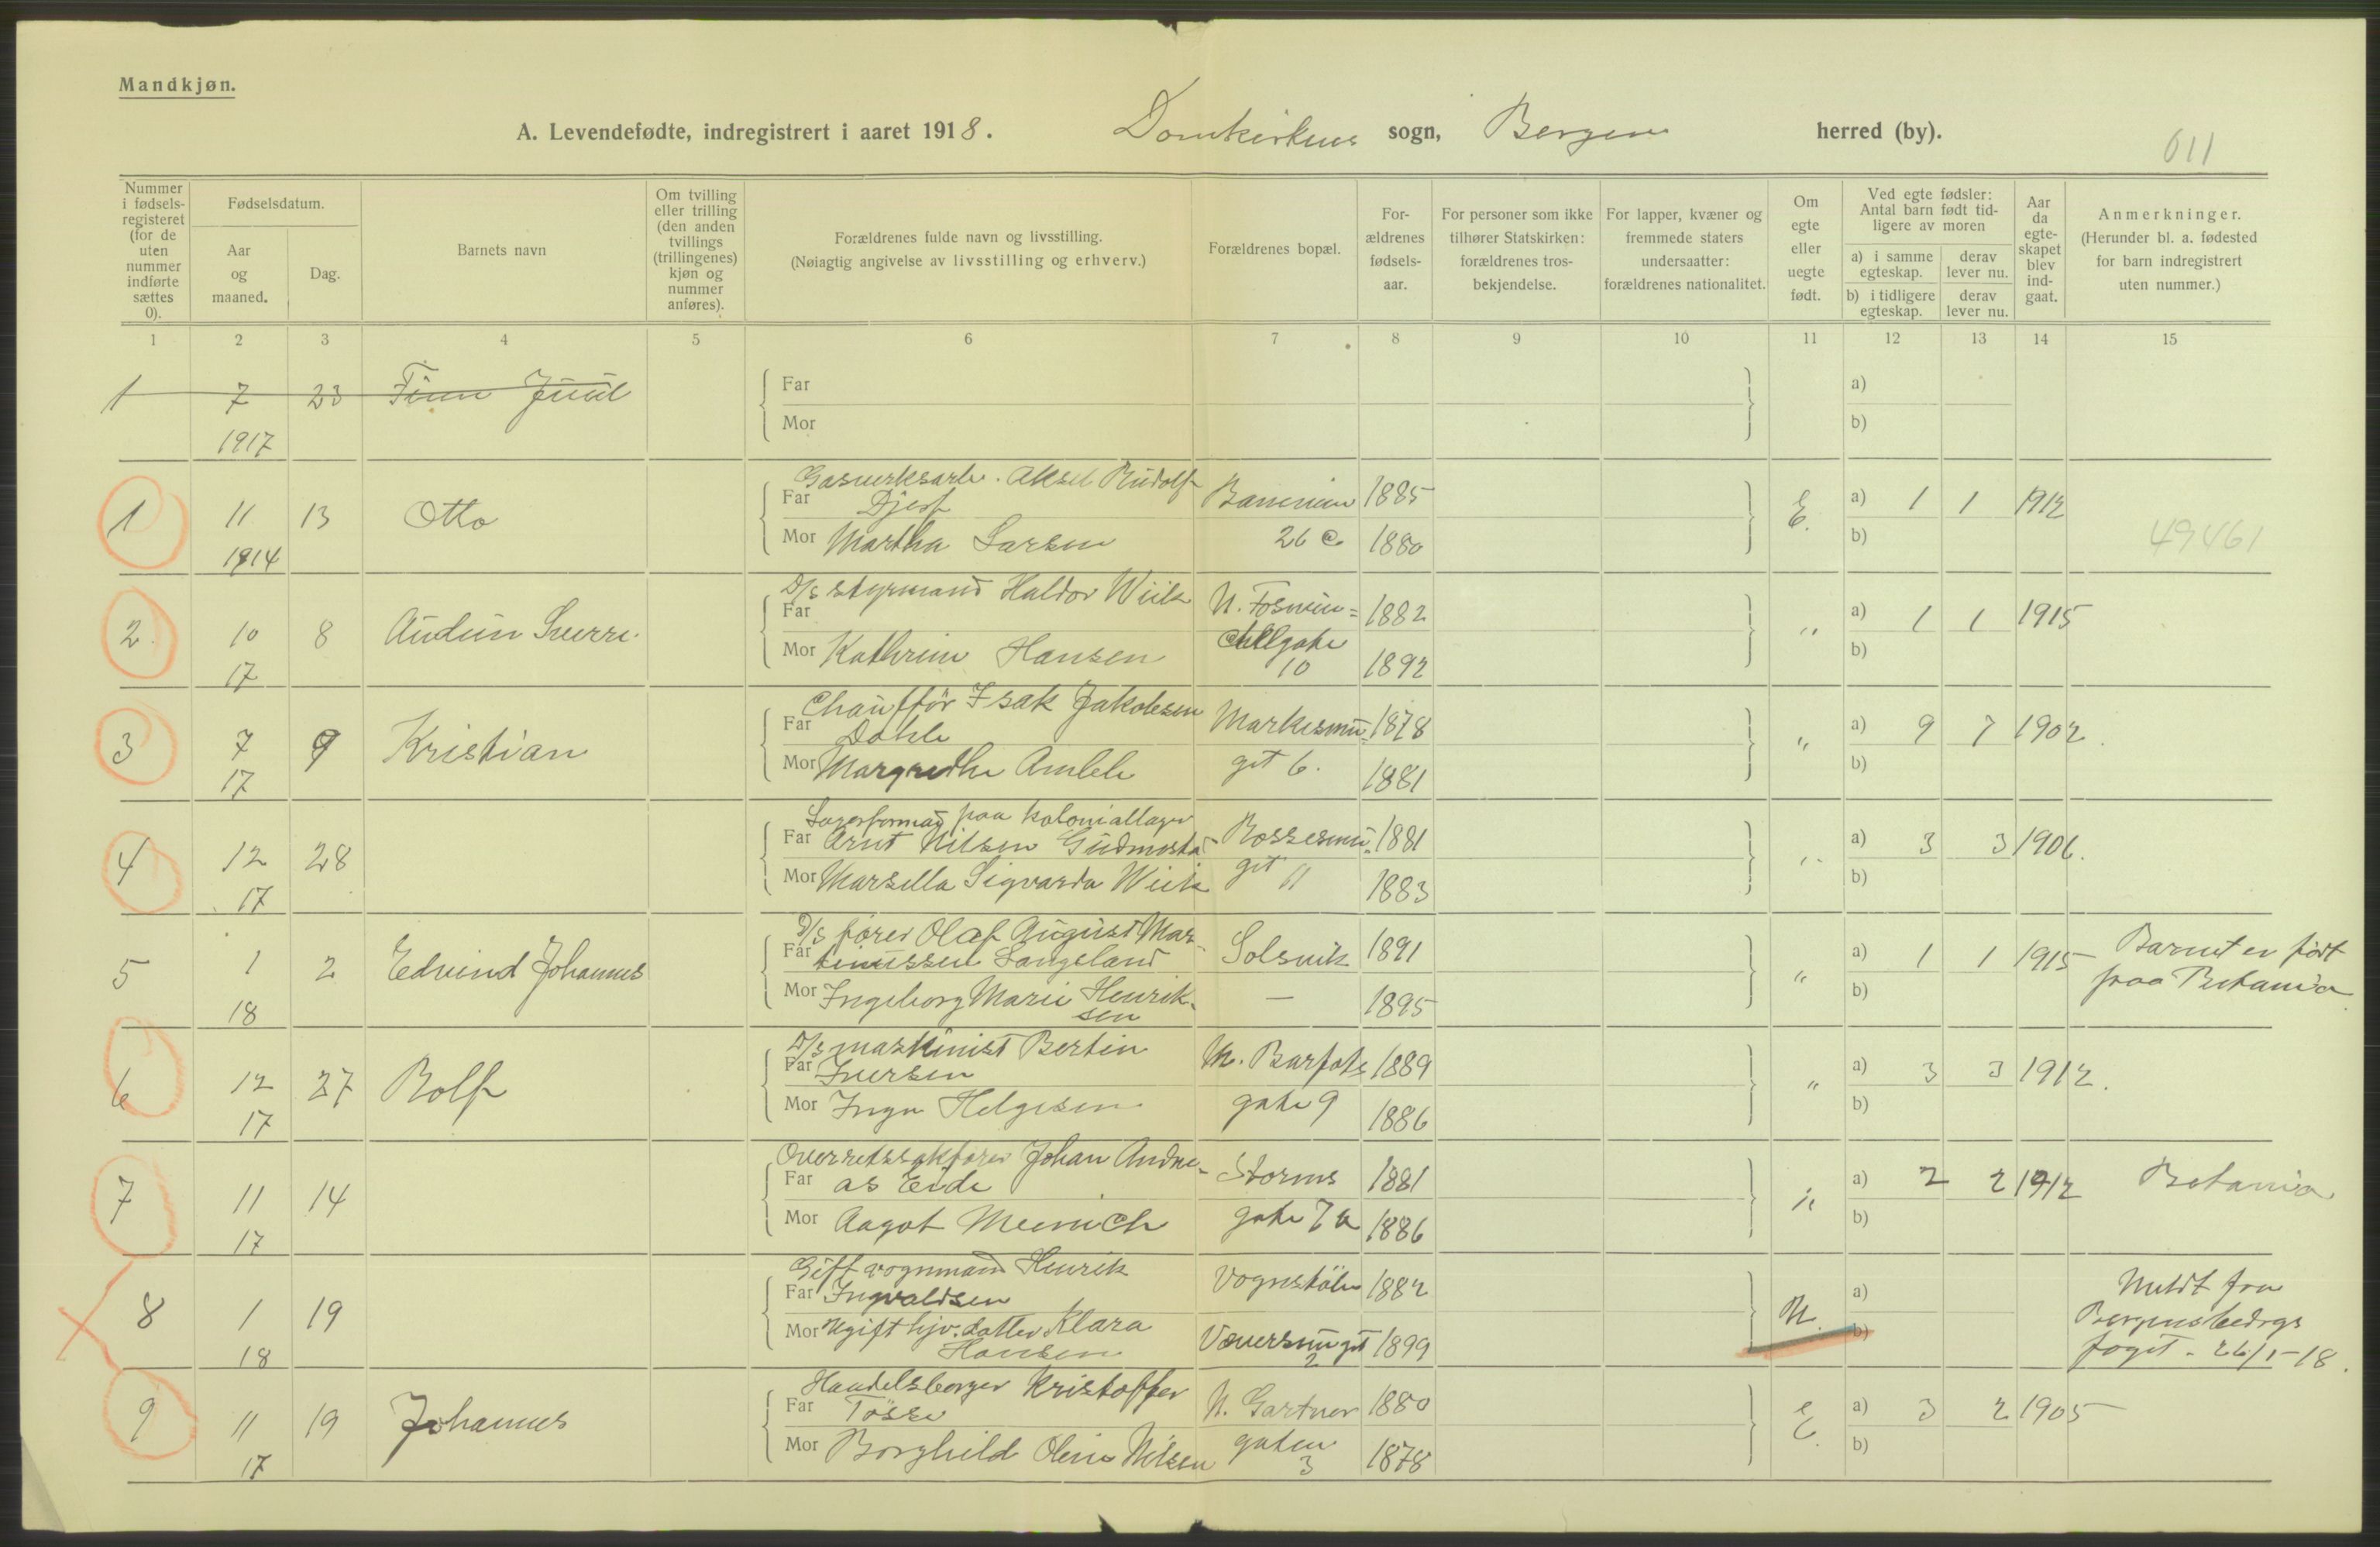 Mandkjøn.
A. Levendefødte, indregistrert i aaret 1918. Domkirkens sogn, Bergen herred (by).
611
Nummer i fødsels-registeret (for de uten nummer indførte sættes 0).
Fødselsdatum.
Aar og maaned.
Dag.
Barnets navn
Om tvilling eller trilling (den anden tvillings (trillingenes) kjøn og nummer anføres).
Forældrenes fulde navn og livsstilling.
(Nøiagtig angivelse av livsstilling og erhverv.)
Forældrenes bopæl.
For-ældrenes fødsels-aar.
For personer som ikke tilhører Statskirken: forældrenes tros-bekjendelse.
For lapper, kvæner og fremmede staters undersaatter: forældrenes nationalitet.
Om egte eller uegte født.
Ved egte fødsler: Antal barn født tid-ligere av moren
a) i samme egteskap. derav lever nu.
b) i tidligere egteskap. derav lever nu.
Aar da egte-skapet blev ind-gaat.
Anmerkninger.
(Herunder bl. a. fødested for barn indregistrert uten nummer.)
1 2 3 4 5 6 7 8 9 10 11 12 13 14 15
1 7 23 Finn Juul Far a)
1917 Mor b)
Gasverksarb. Aksel Rudolf
1 11 13 Otto Far Djesf 1885 E. a) 1 1 1912
1914 Mor Martha Larsen 26 c 1880 b) 49461
D/s styrmand Haldor Wiik
2 10 8 Audun Sverre Far N. Fosvin= 1882 " a) 1 1 1915
17 Mor Kathrine Hansen 10 1892 b)
Chauffør Isak Jakobsen
3 7 9 Kristian Far Dahle Markesmu- 1878 " a) 9 7 1902.
17 Mor Margrethe Amble get 6. 1881 b)
Lagerformand paa koloniallager
4 12 28 Far Arnt Nilsen Rossesmu- 1881 " a) 3 3 1906.
17 Mor Marsella Sigvarda Wiik get 11 1883 b)
D/s fører Olaf August Mar-
5 1 2 Edvind Johannes Far tinussen Langeland Solsvik 1891 " a) 1 1 1915 Barnet er født
18 Mor Ingeborg Marie Henrik-sen — 1895 b) paa Betania
D/s maskinist Bertin
6 12 27 Rolf Far Iversen N. Barfots 1889 " a) 3 3 1912.
17 Mor Inga Helgesen gate 9 1886 b)
Overretssakfører Johan Andre-
7 11 14 Far as Eide Storms 1881 " a) 2 2 1912 Betania
17 Mor Aagot Meinich gate 7 a 1886 b)
Gift vognmand Henrik
8 1 19 Far Ingvaldsen Vognstølen 1882 U. a) Meldt fra
18 Mor Ugift hjv. datter Klara Hansen Væversmuget 2 1899 b) Bergens bidrags
foget - 26/1-18.
Handelsborger Kristoffer
9 11 19 Johannes Far Tøsse N. Gartner 1880 E. a) 3 2 1905
17 Mor Borghild Oline Nilsen gaten 3 1878 b)